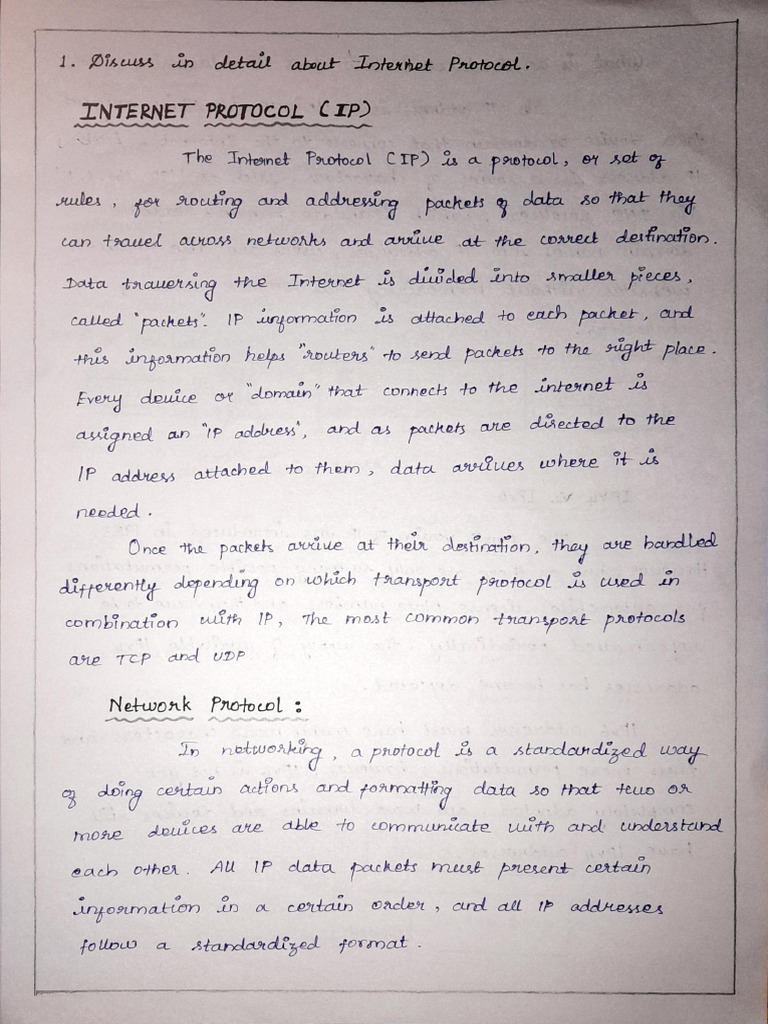 1. Discuss in detail about Internet Protocol.
INTERNET PROTOCOL (IP)
The Internet Protocol (IP) is a protocol, or set of
rules, for routing and addressing packets of data so that they
can travel across networks and arrive at the correct destination.
Data traversing the Internet is divided into smaller pieces,
called "packets". IP information is attached to each packet, and
this information helps "routers" to send packets to the right place.
Every device or "domain" that connects to the internet is
assigned an "IP address", and as packets are directed to the
IP address attached to them, data arrives where it is
needed.
Once the packets arrive at their destination, they are handled
differently depending on which transport protocol is used in
combination with IP, The most common transport protocols
are TCP and UDP
Network Protocol:
In networking, a protocol is a standardized way
of doing certain actions and formatting data so that two or
more devices are able to communicate with and understand
each other. All IP data packets must present certain
information in a certain order, and all IP addresses
follow a standardized format.